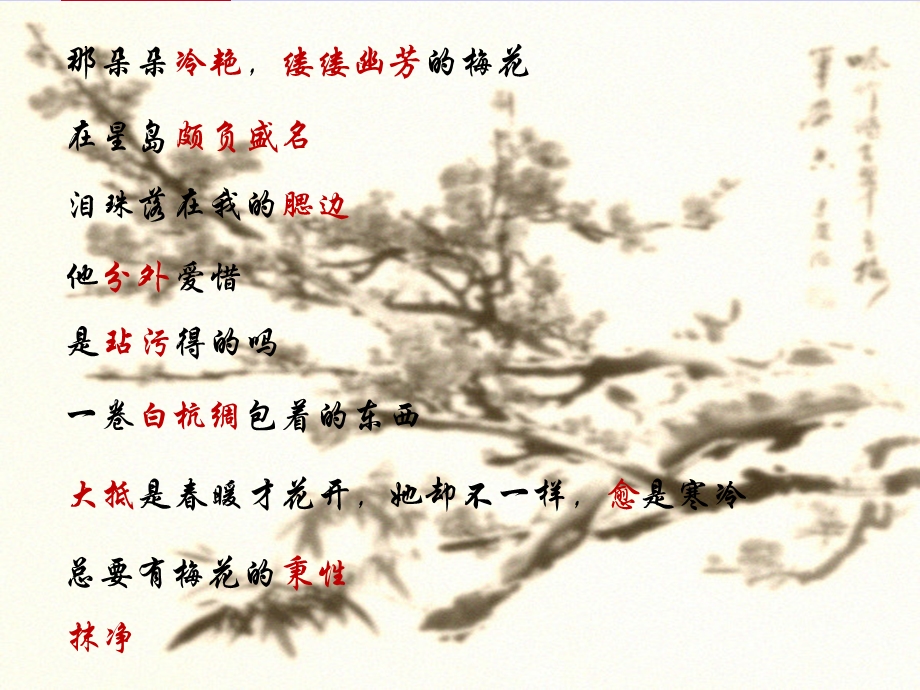 那朵朵冷艳，缕缕幽芳的梅花
在星岛颇负盛名
泪珠落在我的腮边
他分外爱惜
是玷污得的吗
一卷白杭绸包着的东西
大抵是春暖才花开，她却不一样，愈是寒冷
总要有梅花的秉性
抹净